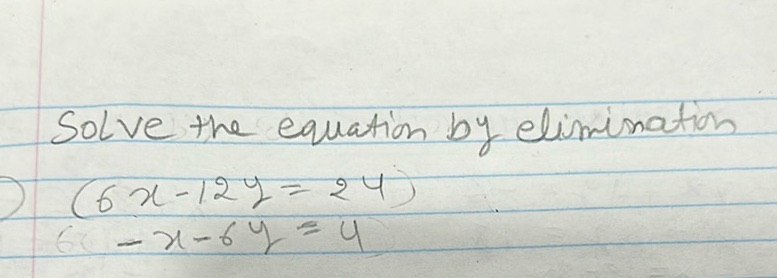 Solve the equation by elimination
) (6x-12y = 24)
-x-6y = 4